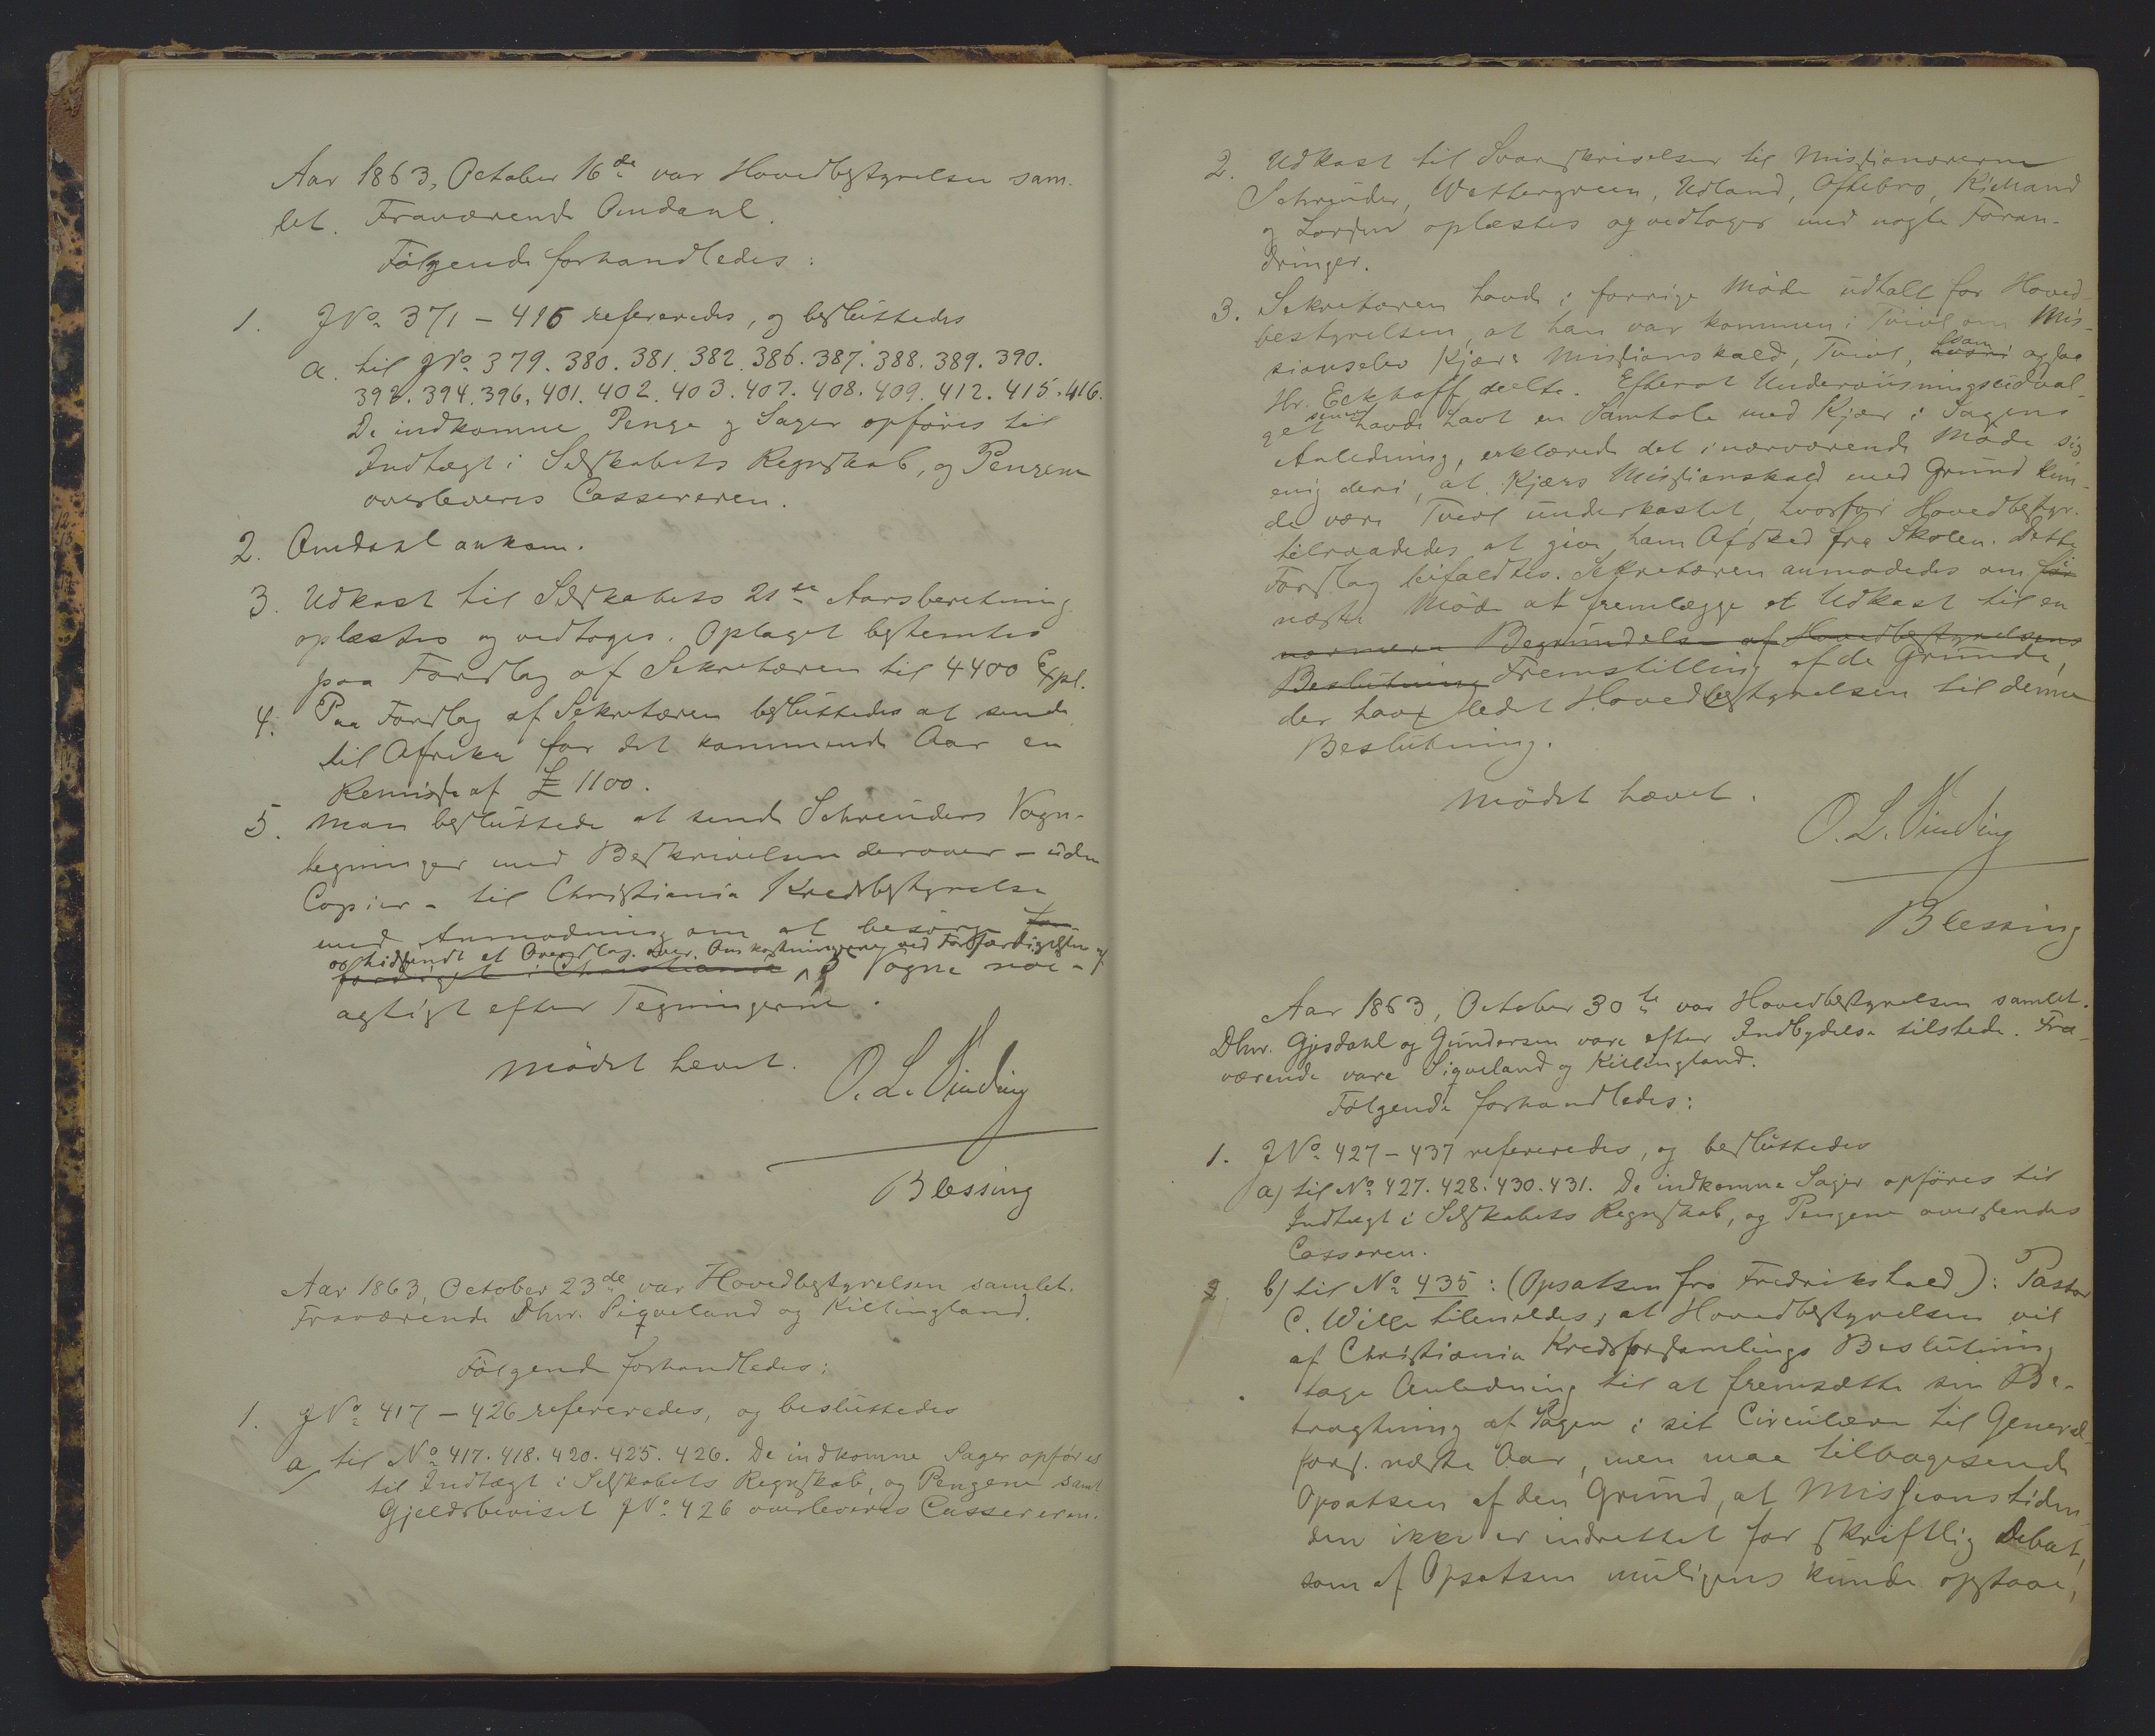 Aar 1863, October 16de var Hovedbestyrelsen sam-
let. Fraværende Omdahl.
Følgende forhandledes:
1. JNo 371 - 416 refereredes, og besluttedes
a. til JNo 379. 380. 381. 382. 386. 387. 388. 389. 390.
392. 394. 396. 401. 402. 403. 407. 408. 409. 412. 415. 416.
De indkomne Penge og Sager opføres til
Indtægt i Selskabets Regnskab, og Pengene
overleveres Cassereren.
2. Omdahl ankom.
3. Udkast til Selskabets 21de Aarsberetning
oplæstes og vedtoges. Oplaget bestemtes
paa Forslag af Sekretæren til 4400 Expl.
4. Paa Forslag af Sekretæren besluttedes at sende
til Afrika for det kommende Aar en
Remisse af £ 1100.
5. Man besluttede at sende Schreuders Vogn-
tegninger med Beskrivelsen derover - uden
Copier - til Christiania Kredsbestyrelse
med Anmodning om at besørge for-
og hidsendt et Overslag over Omkostningerne ved Forfærdigelsen af
færdiget i Christiania 2 Vogne nøi-
agtigt efter Tegningerne.
Mødet hevet.
O. L. Sinding
Blessing
Aar 1863, October 23de var Hovedbestyrelsen samlet.
Fraværende Dhrr. Siqveland og Killingland.
Følgende forhandledes:
1. JNo 417 - 426 refereredes, og besluttedes
a til No 417. 418. 420. 425. 426. De indkomne Sager opføres
til Indtægt i Selskabets Regnskab, og Pengene samt
Gjeldsbeviset JNo 426 overleveres Cassereren.
2. Udkast til Svarskrivelser til Missionærerne
Schreuder, Wettergreen, Udland, Oftebro, Kielland
og Larsen oplæstes og vedtoges med nogle Foran-
dringer.
3. Sekretæren havde i forrige Møde udtalt for Hoved-
bestyrelsen, at han var kommen i Tvivl om Mis-
sionselev Kjærs Missionskald, Tvivl, hvori som ogsaa
Hr. Eckhoff deelte. Efterat Underviisningsudval-
get senere havde havt en Samtale med Kjær i Sagens
Anledning, erklærede det i nærværende Møde sig
enig deri, at Kjærs Missionskald med Grund kun-
de være Tvivl underkastet, hvorfor Hovedbestyr.
tilraadedes at give ham Afsked fra Skolen. Dette
Forslag bifaldtes. Sekretæren anmodedes om før
næste Møde at fremlægge et Udkast til en
nærmere Begrundelse af Hovedbestyrelsens
Beslutning Fremstilling af de Grunde,
der have ledet Hovedbestyrelsen til denne
Beslutning.
Mødet hævet.
O. L. Sinding
Blessing
Aar 1863, October 30te var Hovedbestyrelsen samlet.
Dhrr. Gjesdahl og Gundersen vare efter Indbydelse tilstede. Fra-
værende vare Siqveland og Killingland.
Følgende forhandledes:
1. JNo 427 - 437 refereredes, og besluttedes
a) til No 427. 428. 430. 431. De indkomne Sager opføres til
Indtægt i Selskabets Regnskab, og Pengene oversendes
Casseren.
2 b) til No 435: (Opsatsen fra Fredrikshald): Pastor
C. Wille tilmeldes, at Hovedbestyrelsen vil
af Christiania Kredsforsamlings Beslutning
tage Anledning til at fremsætte sin Be-
tragtning af Sagen i sit Circulære til General-
fors. næste Aar, men maa tilbagesende
Opsatsen af den Grund, at Missionstiden-
den ikke er indrettet for skriftlig Debat,
som af Opsatsen muligens kunde opstaae,